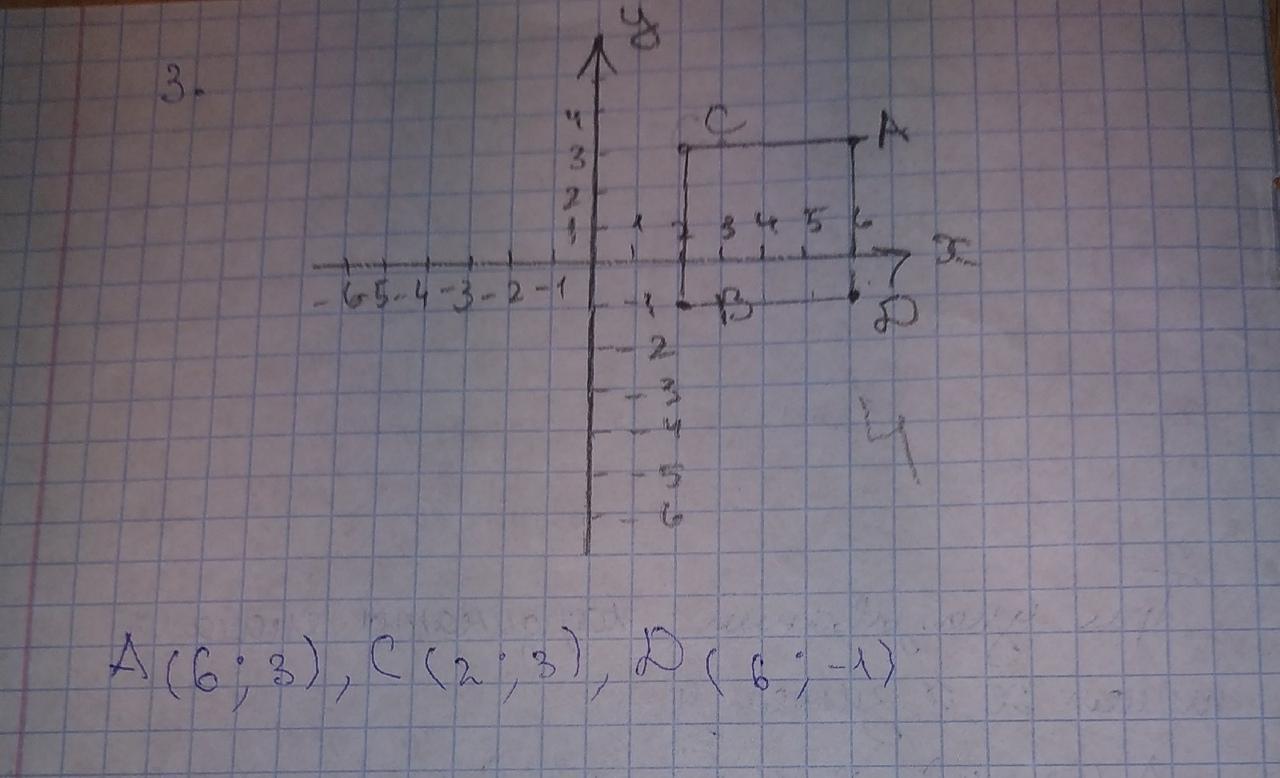 3.
y
4
3
2
1
C
A
1 2 3 4 5 6
x
-6 -5 -4 -3 -2 -1
-1
B
D
-2
-3
-4
-5
-6
4
A(6;3), C(2;3), D(6;-1)